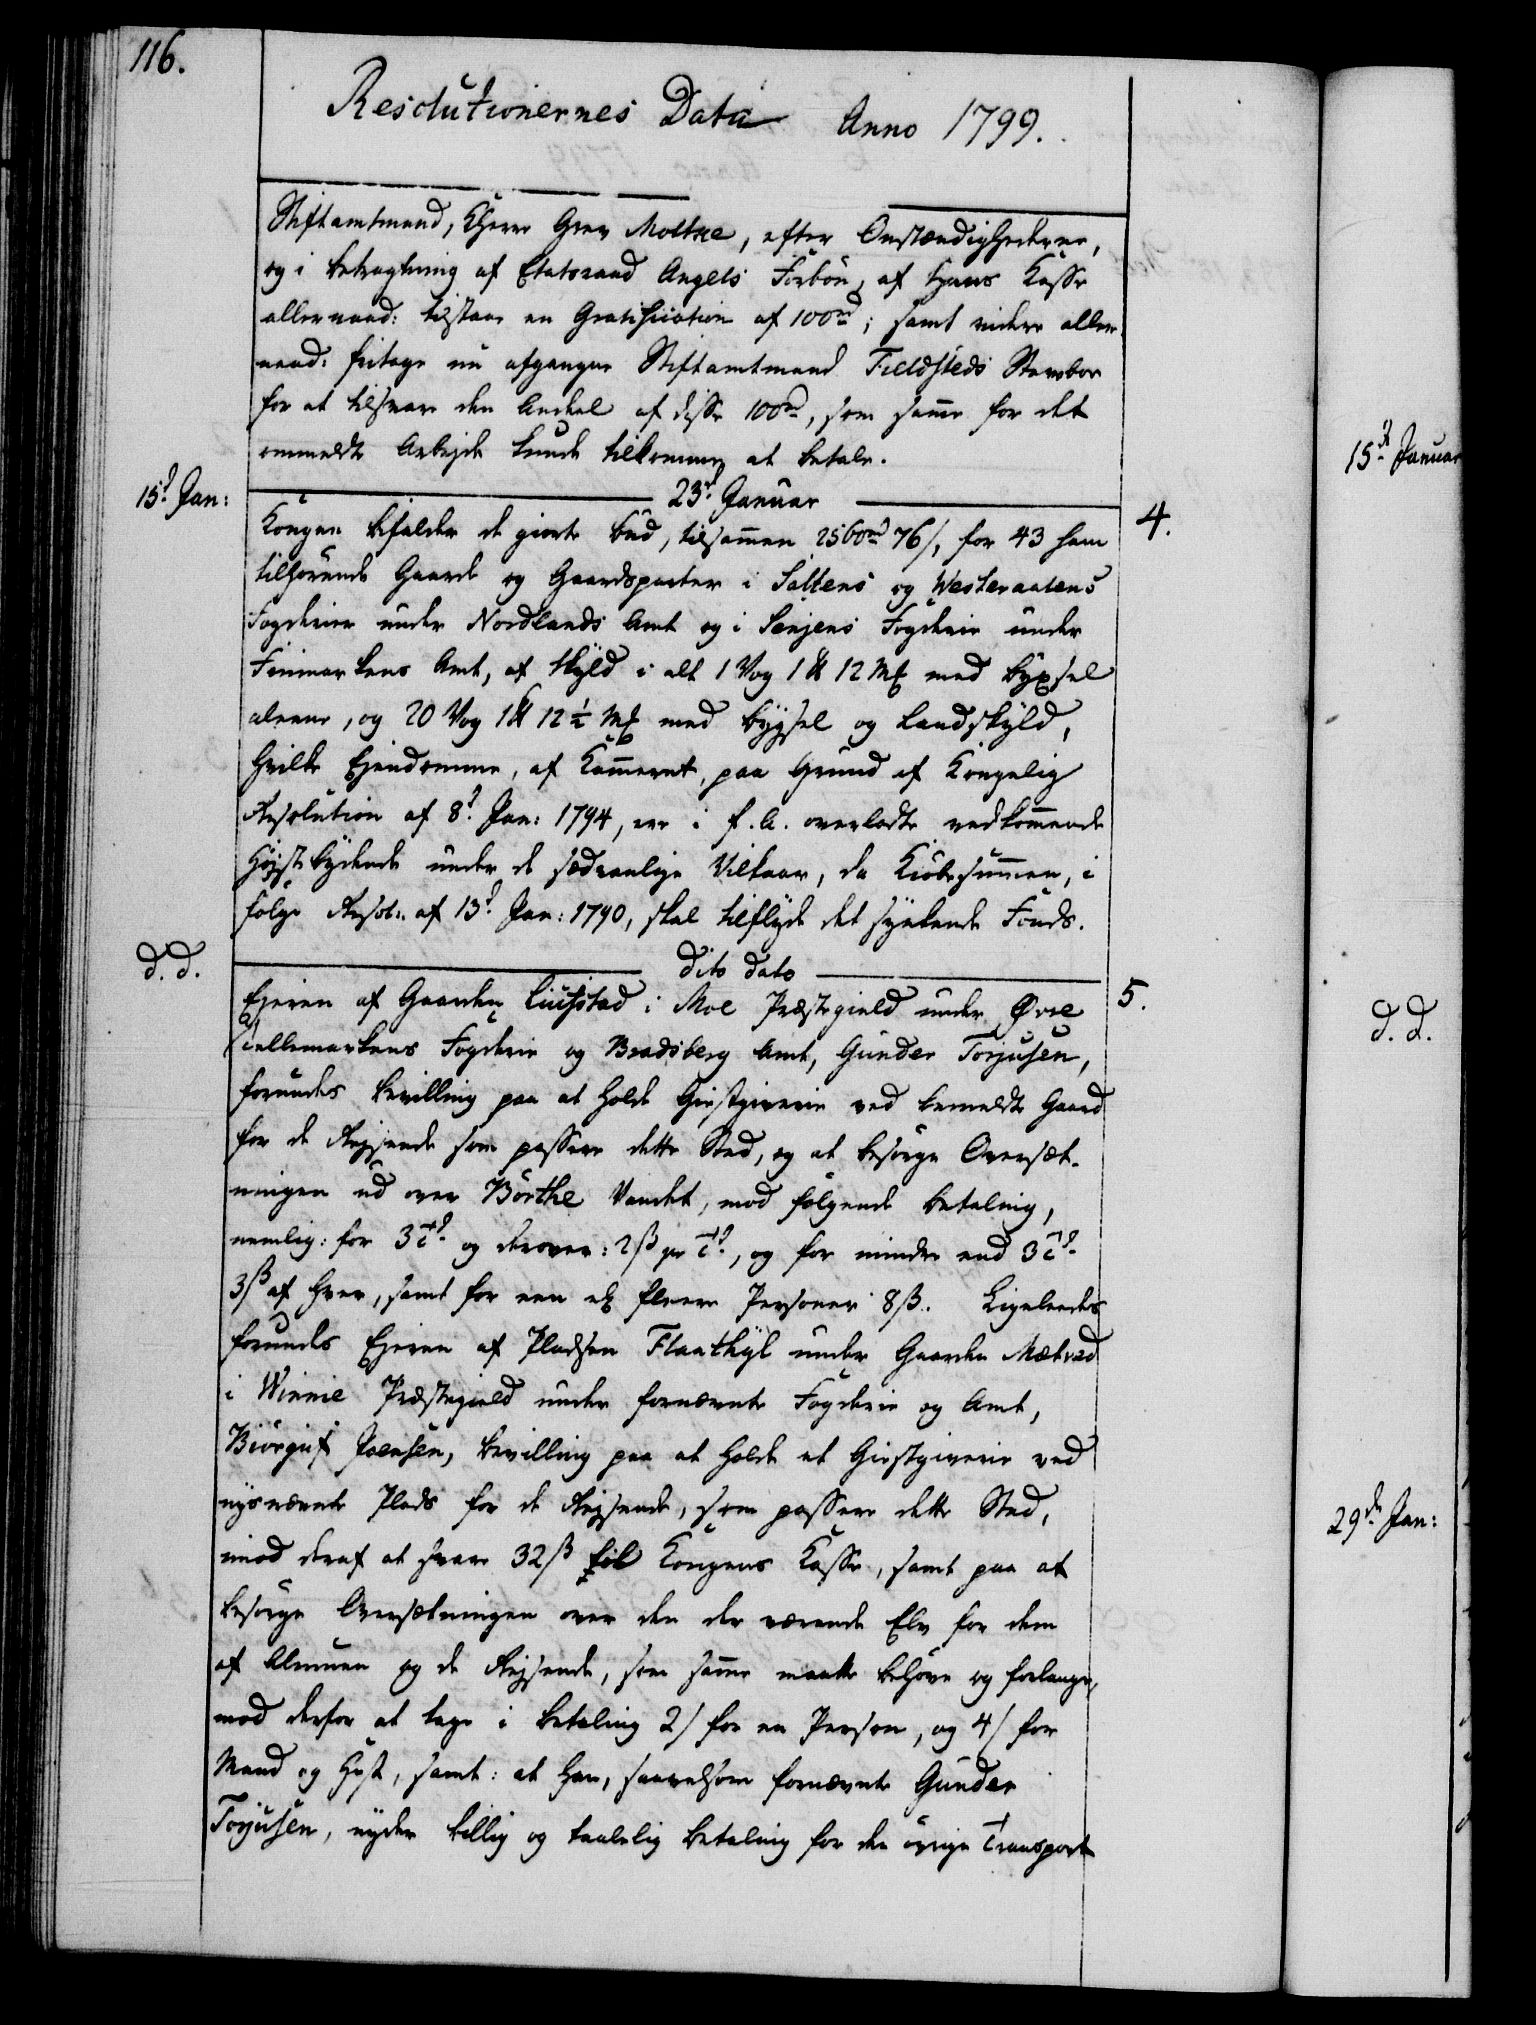 116.
Resolutionernes Data Anno 1799.
Stiftamtmand, Kherre Grev Moltke, efter Omstændighederne,
og i betragtning af Etatsraad Angels Forbön, af hans Kasse
allernaad: tilstaae en Gratification af 100rd; samt videre aller-
naad: fritage nu afgangne Stiftamtmand Fieldsteds Sterboe
for at tilsvare den Andeel af disse 100rd, som samme for det
ommeldte Arbejde kunde tilkomme at betale.
15d Jan:
23d Januar
4.
Kongen bifalder de giorte bud, tilsammen 2560rd 76s, for 43 ham
tilhörende Gaarde og Gaardsparter i Saltens og Westeraalens
Fogderier under Nordlands Amt og i Senjens Fogderie under
Finmarkens Amt, af Skyld i alt 1 Vog 1 ℔ 12 Mk med byxsel
alene, og 20 Vog 1 ℔ 12½ Mk med bygsel og Landskyld,
hvilke Ejendomme, af Kammeret, paa Grund af Kongelig
Resolution af 8d Jan: 1794, ere i f. A. overladte vedkommende
Højstbydende under de sædvanlige Vilkaar, da Kiöbesummen, i
fölge Resol: af 13d Jan: 1790, skal tilflyde det synkende Fonds.
d. d.
dito dato
5.
Ejeren af Gaarden Liusstad i Moe Præstegield under Øvre
Tellemarkens Fogderie og Bradsberg Amt, Gunder Torjusen,
forundes bevilling paa at holde Giestgiverie ved bemeldte Gaard
for de Rejsende som passere dette Sted, og at besörge Oversæt-
ningen ud over Börthe Vandet, mod fölgende betaling,
nemlig: for 3 Td og derover: 2ß pr Td, og for mindre end 3 Td
3ß af hver, samt for een el flere Personer 8ß. Ligeledes
forundes Ejeren af Pladsen Flaathyl under Gaarden Mætved
i Winnie Præstegield under fornævnte Fogderie og Amt,
Biörguf Joensen, bevilling paa at holde et Giestgiverie ved
nysnævnte Plads for de Rejsende, som passere dette Sted,
imod deraf at svare 32ß til Kongens Kasse, samt paa at
besörge Oversætningen over den der værende Elv for dem
af Almuen og de Rejsende, som samme maatte behöve og forlange,
mod derfor at tage i betaling 2s for en Person, og 4s for
Mand og Hest, samt: at han, saavelsom fornævnte Gunder
Torjusen, nyder billig og taalelig betaling for den övrige Transport
15d Januar
d. d.
29de Jan: